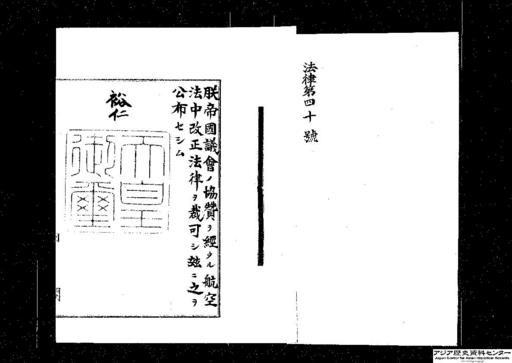 法律第四十號
朕帝國議會ノ協贊ヲ經タル航空
法中改正法律ヲ裁可シ玆ニ之ヲ
公布セシム
裕仁
天皇
御璽
アジア歴史資料センター
Japan Center for Asian Historical Records